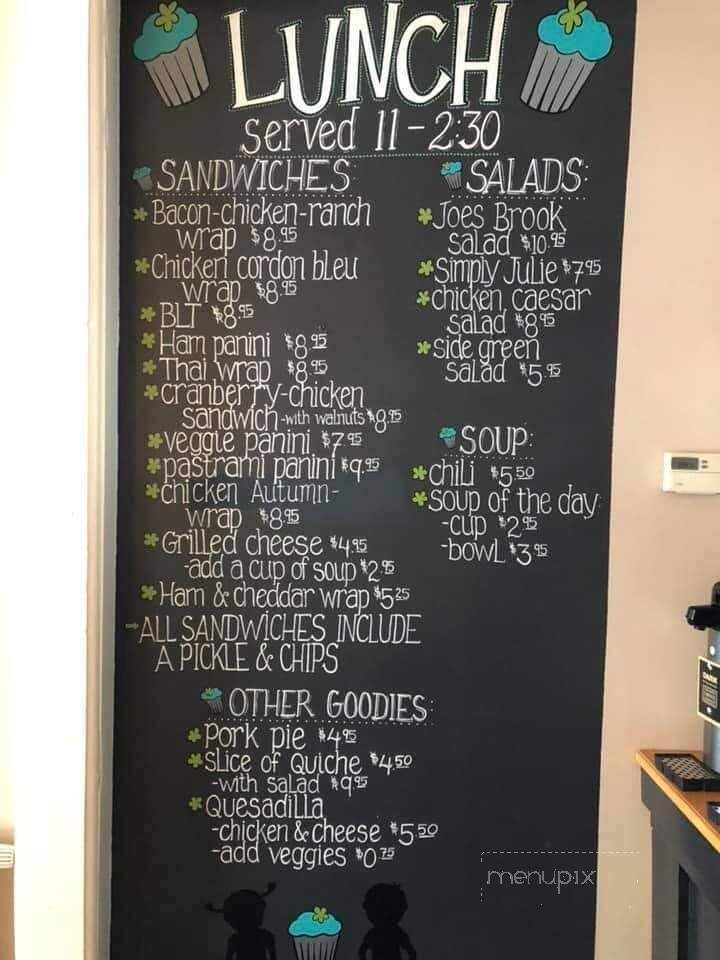 LUNCH
served 11-2:30
SANDWICHES:
Bacon-chicken-ranch
wrap $8.95
Chicken cordon bleu
wrap $8.95
BLT $8.95
Ham panini $8.95
Thai wrap $8.95
cranberry-chicken
sandwich -with walnuts $8.95
veggie panini $7.95
pastrami panini $9.95
chicken Autumn-
wrap $8.95
Grilled cheese $4.95
-add a cup of soup $2.95
Ham & cheddar wrap $5.25
ALL SANDWICHES INCLUDE
A PICKLE & CHIPS
SALADS:
Joes Brook
salad $10.95
Simply Julie $7.95
chicken caesar
salad $8.95
side green
salad $5.95
SOUP:
chili $5.50
soup of the day:
-cup $2.95
-bowl $3.95
OTHER GOODIES:
Pork pie $4.95
Slice of Quiche $4.50
-with salad $9.95
Quesadilla
-chicken & cheese $5.50
-add veggies $0.75
menupix
DARK